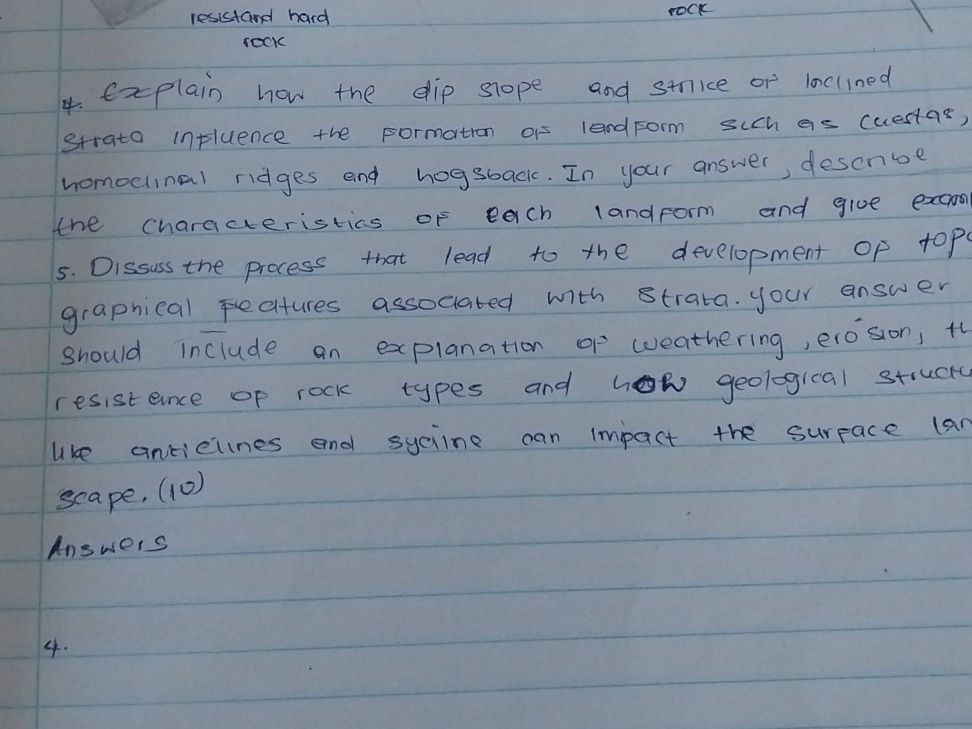 resistand hard
rock
rock
4. Explain how the dip slope and strike of Inclined
strata Influence the formation of landform such as cuestas,
homoclinal ridges and hogsback. In your answer, describe
the characteristics of each landform and give exam
5. Discuss the process that lead to the development of topo
graphical features associated with strata. your answer
should include an explanation of weathering, erosion, th
resistance of rock types and how geological structu
like anticlines and sycline can impact the surface lan
scape. (10)
Answers
4.